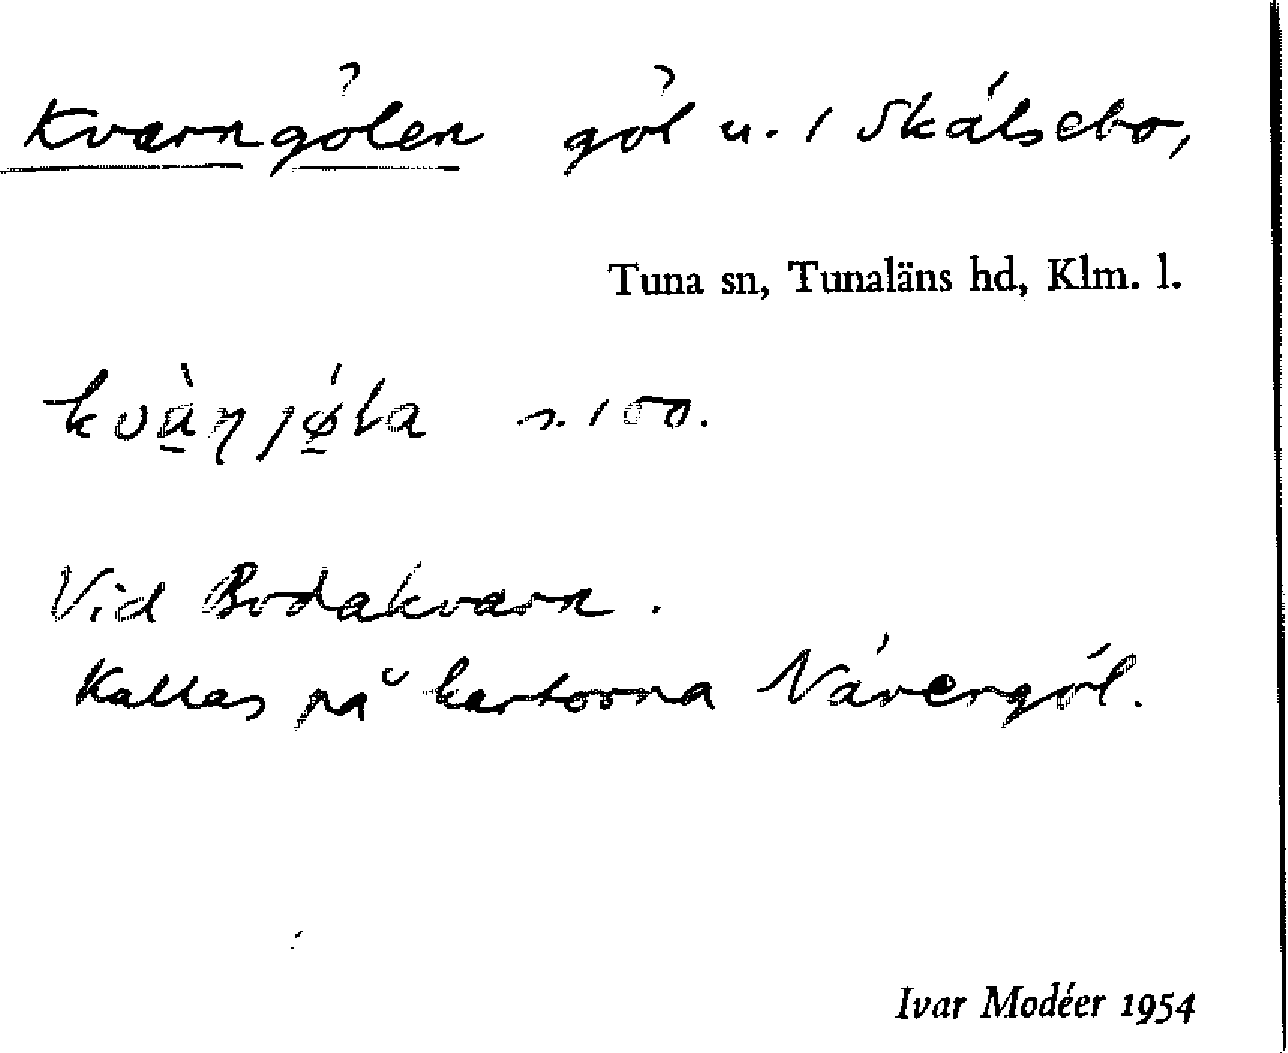 Kvarngölen göl u. / Skälsebo,
Tuna sn, Tunaläns hd, Klm. l.
kvàɳjǿla s. 100.
Vid Bodakvarn.
Kallas på kartorna Nävergöl.
Ivar Modéer 1954